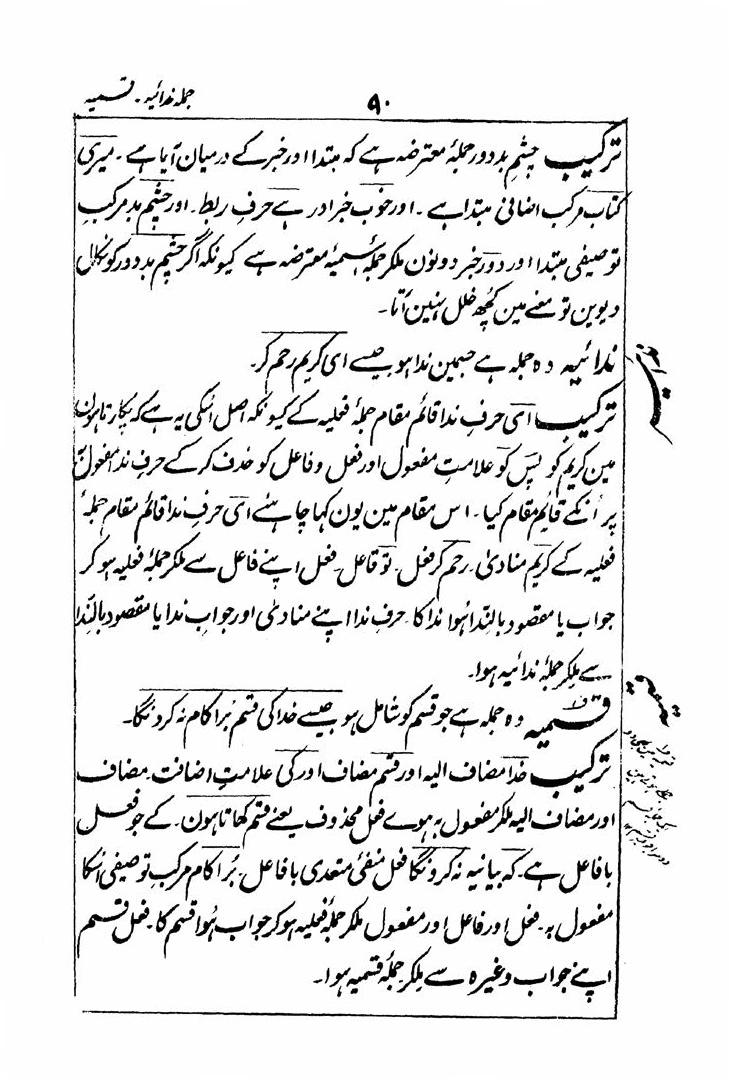 ۹۰
جملہ ندائیہ - قسمیہ
ترکیب چشمِ بد دور جملۂ معترضہ ہے کہ مبتدا اور خبر کے درمیان آیا ہے - میری
کتاب مرکب اضافی مبتدا ہے - اور خوب خبر اور ہے حرفِ ربط - اور چشم بد مرکبِ
توصیفی مبتدا اور دور خبر دونون ملکر جملۂ اسمیہ معترضہ ہے کیونکہ اگر چشم بد دور کو نکال
دیوین تو معنے مین کچھ خلل نہین آتا -
ندائیہ وہ جملہ ہے جسمین ندا ہو جیسے ای کریم رحم کر -
ترکیب ای حرفِ ندا قائم مقام جملۂ فعلیہ کے کیونکہ اصل اسکی یہ ہے کہ پکارتا ہون
مین کریم کو پس کو علامتِ مفعول اور فعل و فاعل کو حذف کر کے حرفِ ندا مفعول
پر اُنکے قایم مقام کیا - اس مقام مین یون کہا چاہئے ای حرفِ ندا قائم مقام جملۂ
فعلیہ کے کریم منادیٰ - رحم کر فعل - تو فاعل - فعل اپنے فاعل سے ملکر جملۂ فعلیہ ہو کر
جواب یا مقصود بالنِّدا ہُوا ندا کا - حرفِ ندا اپنے منادیٰ اور جوابِ ندا یا مقصود بالنِّدا
سے ملکر جملۂ ندائیہ ہوا -
قسمیہ وہ جملہ ہے جو قسم کو شامل ہو جیسے خدا کی قسم بُرا کام نہ کرونگا -
ترکیب خدا مضاف الیہ اور قسم مضاف اور کی علامتِ اضافت - مضاف
اور مضاف الیہ ملکر مفعول بہ ہوے فعل محذوف یعنے قسم کھاتا ہون - کے جو فعل
با فاعل ہے - کہ بیانیہ نہ کرونگا فعل منفی متعدی با فاعل - بُرا کام مرکبِ توصیفی اسکا
مفعول بہ - فعل اور فاعل اور مفعول ملکر جملۂ فعلیہ ہو کر جواب ہُوا قسم کا - فعل قسم
اپنے جواب وغیرہ سے ملکر جملۂ قسمیہ ہوا -